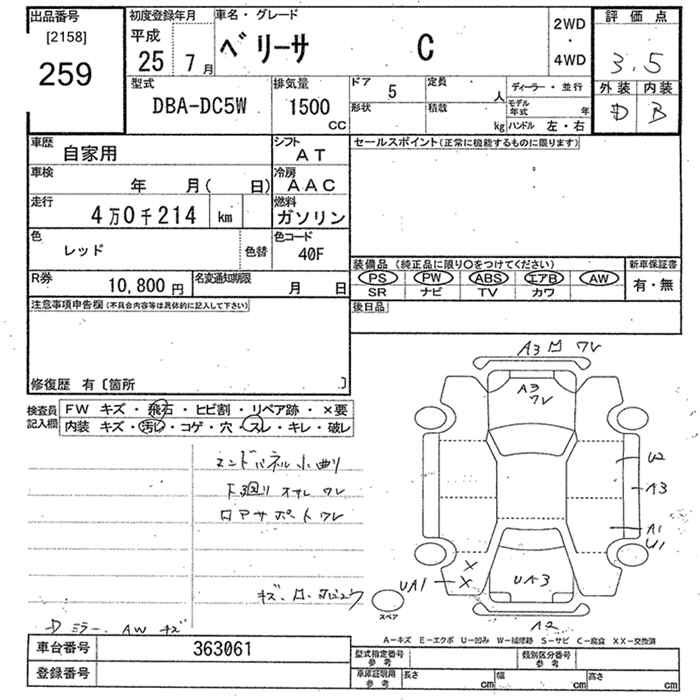 出品番号
[2158]
259
初度登録年月
平成
25 7月
車名・グレード
ベリーサ C
2WD
・
4WD
評価点
3.5
外装 内装
D B
型式
DBA-DC5W
排気量
1500
CC
ドア 5
定員 人
ディーラー・並行
形状
積載 kg
モデル年式 年
ハンドル 左・右
車歴
自家用
シフト
AT
セールスポイント(正常に機能するものに限ります)
車検
年 月( 日)
冷房
AAC
走行
4万0千214 km
燃料
ガソリン
色
レッド
色替
色コード
40F
装備品 (純正品に限り〇をつけてください)
新車保証書
PS PW ABS エアB AW
有・無
SR ナビ TV カワ
R券
10,800円
名変通知期限
月 日
後日品
注意事項申告欄(不具合内容等は具体的に記入して下さい)
修復歴 有〔箇所 〕
検査員記入欄
FW キズ・飛石・ヒビ割・リペア跡・×要
内装 キズ・汚レ・コゲ・穴・スレ・キレ・破レ
エンドパネル小曲り
下廻り オサレ ワレ
ロアサポート ワレ
Dミラー、AW キズ
A3 ワレ
A3
ワレ
U2
A3
A1
U1
X
X
UA1
UA3
A2
スペア
A-キズ E-エクボ U-凹み W-補修跡 S-サビ C-腐食 XX-交換済
車台番号
363061
登録番号
型式指定番号
参考
類別区分番号
参考
車庫証明用
参考
長さ cm
幅 cm
高さ cm